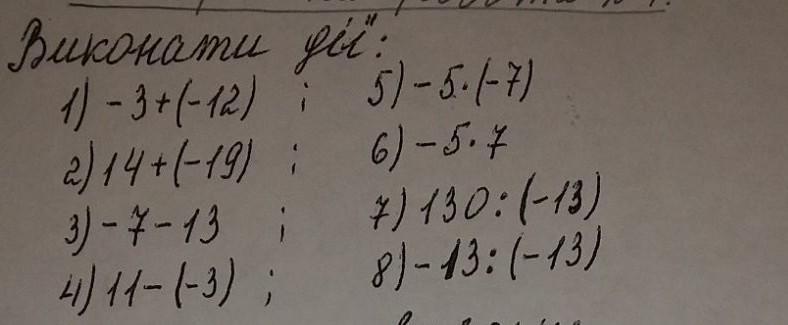 Виконати дії:
1) -3+(-12) ; 5) -5·(-7)
2) 14+(-19) ; 6) -5·7
3) -7-13 ; 7) 130:(-13)
4) 11-(-3) ; 8) -13:(-13)